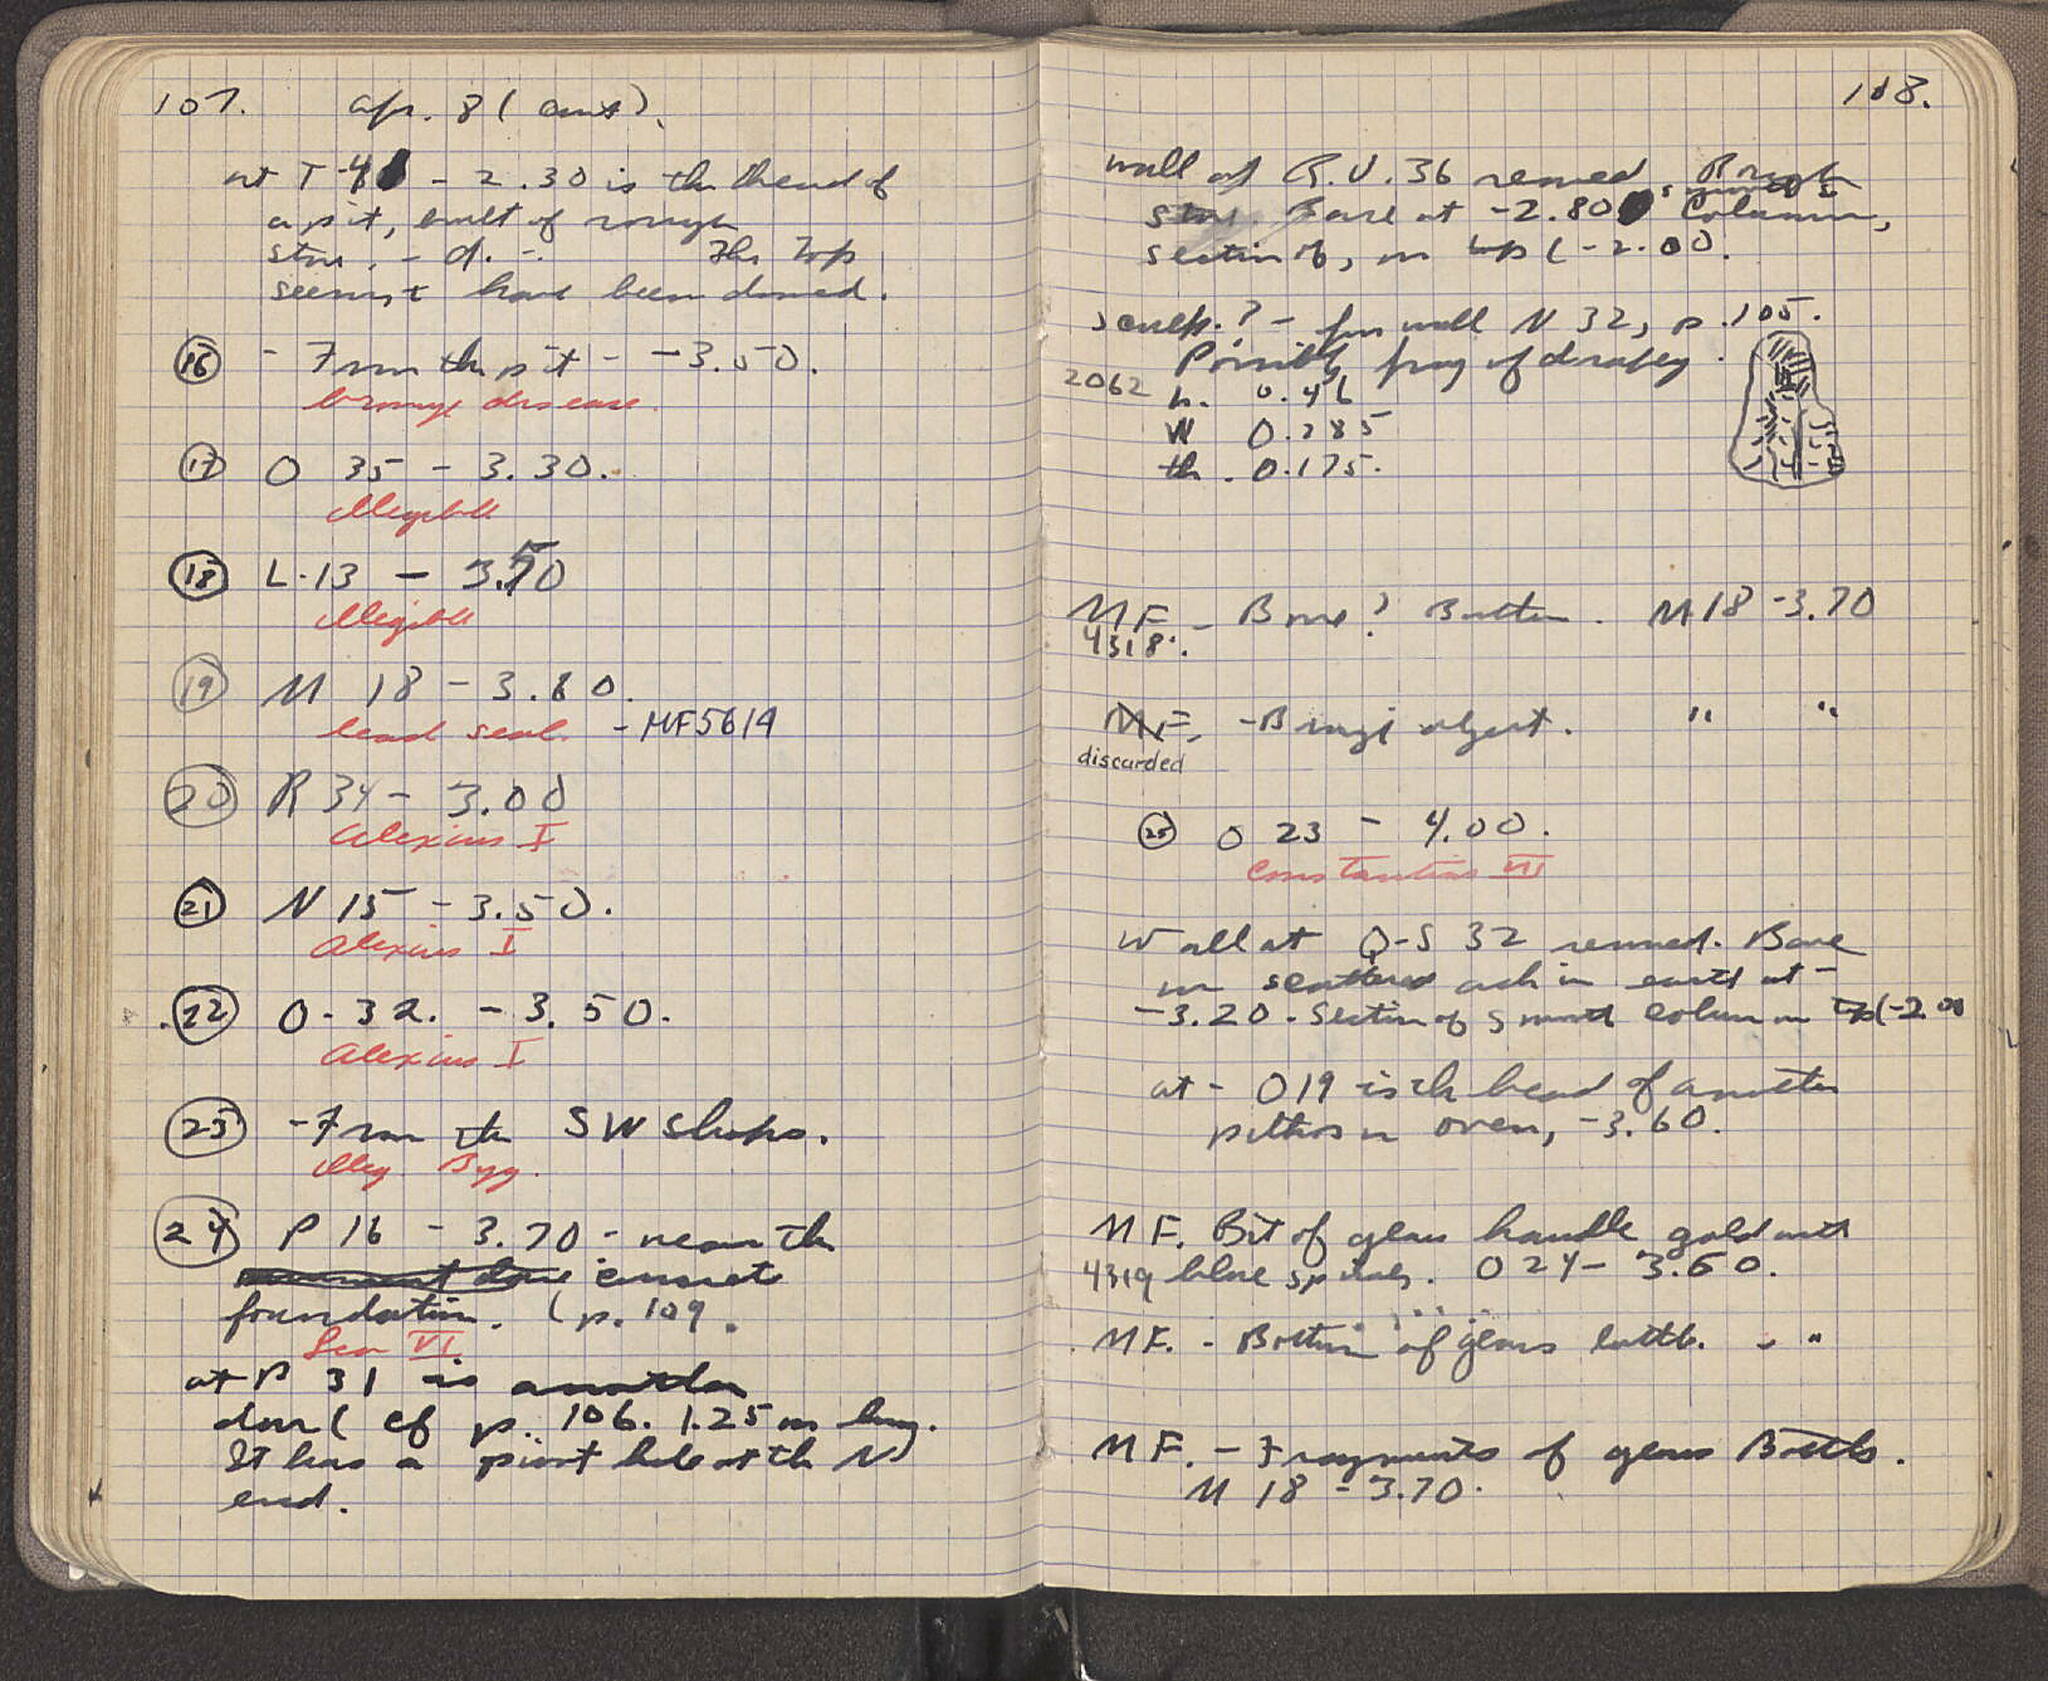 107. Apr. 8 (cont).
at T 4 - 2.30 is the head of
a pit, built of rough
stone. - d. - The top
seems to have been domed.
16 - From the pit - -3.50.
bronze disease.
17 O 35 - 3.30.
Illegible
18 L.13 - 3.50
Illegible
19 M 18 - 3.80.
lead seal. - MF5619
20 R 34 - 3.00
Alexius I
21 N 15 - 3.50.
Alexius I
22 O-32. - 3.50.
Alexius I
23 - From the SW Shops.
Illeg. Byz.
24 P 16 - 3.70 - near the
concrete
foundation. (p. 109.
Leo VI.
at P 31 is another
door (cf p. 106. 1.25 m long.
It has a pivot hole at the N
end.
108.
wall at R.U. 36 removed. Rough
stone. Base at -2.80 Column,
section of, on top (-2.00.
Sculp.? - from wall N 32, p. 105.
Possibly frag of drapery.
2062 h. 0.46
W 0.285
th. 0.175.
MF - Bone? Button. M 18 -3.70
4318.
MF. - Bronze object. " "
discarded
25 O 23 - 4.00.
Constantine VII
Wall at Q-S 32 removed. Base
on scattered ash in earth at -
-3.20. Section of smooth column on top (-2.00
at - O19 is the head of another
pithos or oven, -3.60.
MF. Bit of glass handle gold with
4319 blue spirals. O 24 - 3.60.
MF. - Bottom of glass bottle. " "
MF. - Fragments of glass Bottles.
M 18 - 3.70.